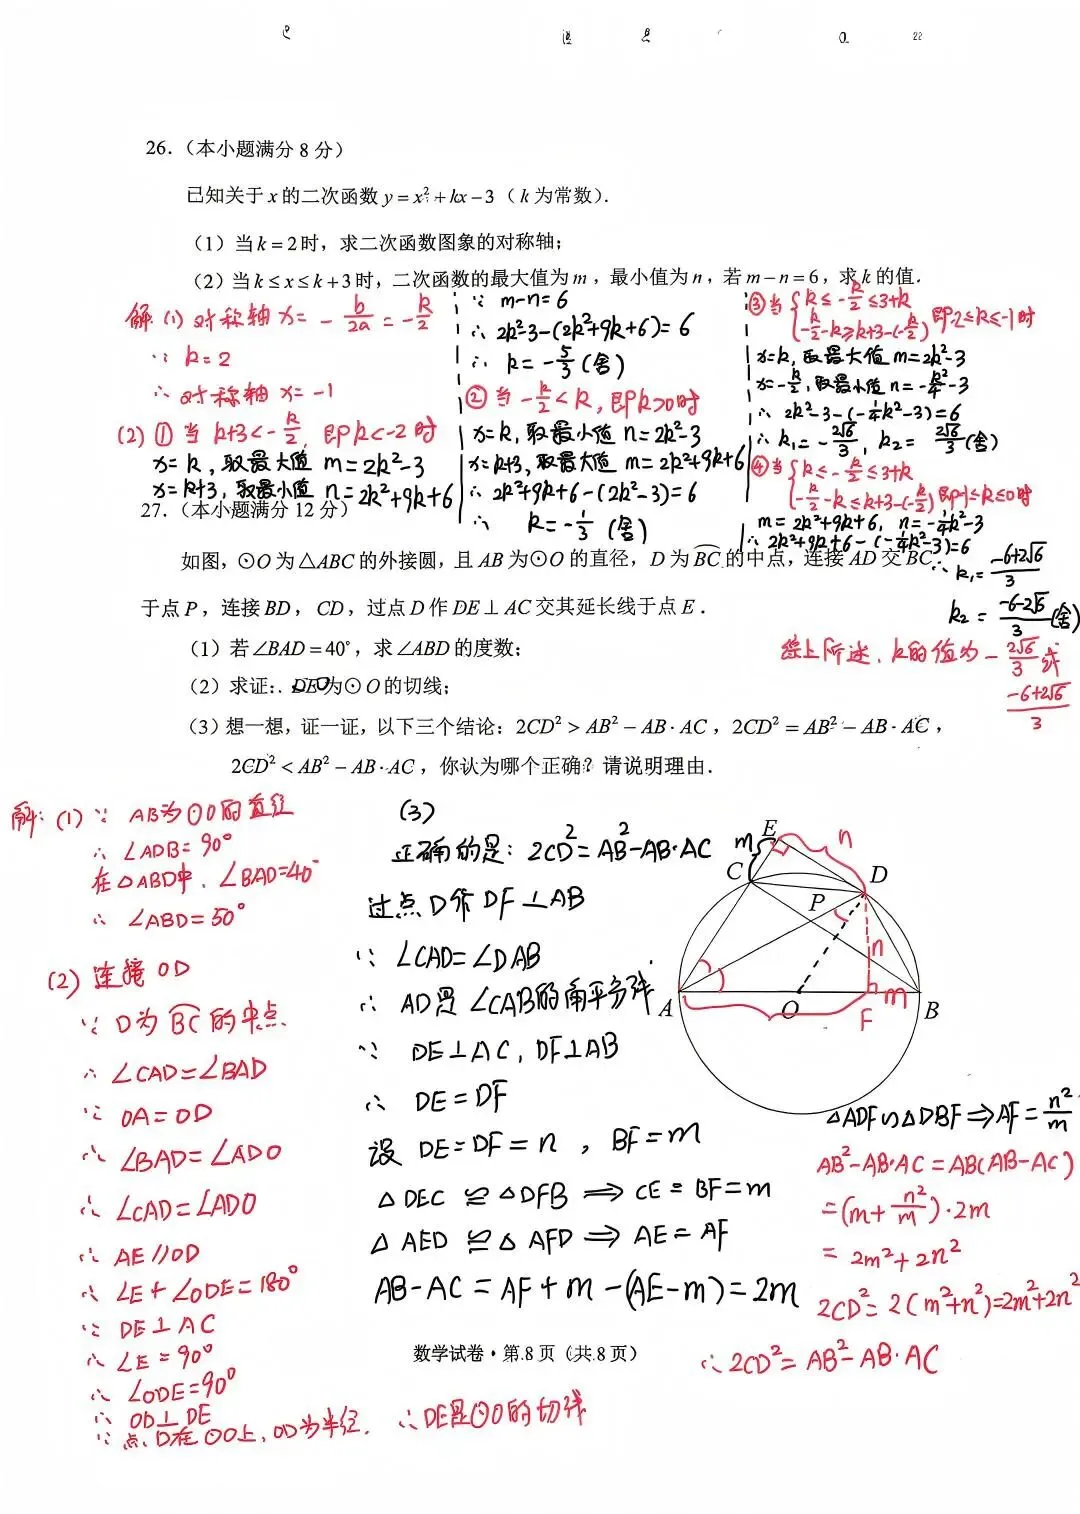 26.（本小题满分 8 分）
已知关于 x 的二次函数 y = x² + kx − 3（k 为常数）.
（1）当 k = 2 时，求二次函数图象的对称轴；
（2）当 k ≤ x ≤ k + 3 时，二次函数的最大值为 m，最小值为 n，若 m − n = 6，求 k 的值.
解 (1) 对称轴 x = − b/2a = − k/2
∵ k = 2
∴ 对称轴 x = −1
(2) ① 当 k+3 < − k/2，即 k < −2 时
x = k，取最大值 m = 2k² − 3
x = k+3，取最小值 n = 2k² + 9k + 6
∵ m − n = 6
∴ 2k² − 3 − (2k² + 9k + 6) = 6
∴ k = − 5/3 (舍)
② 当 − k/2 < k，即 k > 0 时
x = k，取最小值 n = 2k² − 3
x = k+3，取最大值 m = 2k² + 9k + 6
∴ 2k² + 9k + 6 − (2k² − 3) = 6
∴ k = − 1/3 (舍)
③ 当 { k ≤ − k/2 ≤ 3+k
− k/2 − k ≥ k+3 − (− k/2) 即 −2 ≤ k ≤ −1 时
x = k，取最大值 m = 2k² − 3
x = − k/2，取最小值 n = − k²/4 − 3
∴ 2k² − 3 − (− 1/4 k² − 3) = 6
∴ k₁ = − 2√6/3，k₂ = 2√6/3 (舍)
④ 当 { k ≤ − k/2 ≤ 3+k
− k/2 − k ≤ k+3 − (− k/2) 即 −1 ≤ k ≤ 0 时
m = 2k² + 9k + 6，n = − 1/4 k² − 3
∴ 2k² + 9k + 6 − (− 1/4 k² − 3) = 6
∴ k₁ = −6+2√6/3
k₂ = −6−2√6/3 (舍)
综上所述，k 的值为 − 2√6/3 或
−6+2√6/3
27.（本小题满分 12 分）
如图，⊙O 为 △ABC 的外接圆，且 AB 为 ⊙O 的直径，D 为 BC 的中点，连接 AD 交 BC
于点 P，连接 BD，CD，过点 D 作 DE ⊥ AC 交其延长线于点 E.
（1）若 ∠BAD = 40°，求 ∠ABD 的度数；
（2）求证：DE 为 ⊙O 的切线；
（3）想一想，证一证，以下三个结论：2CD² > AB² − AB · AC，2CD² = AB² − AB · AC，
2CD² < AB² − AB · AC，你认为哪个正确？请说明理由.
解：(1) ∵ AB为⊙O的直径
∴ ∠ADB = 90°
在△ABD中，∠BAD = 40°
∴ ∠ABD = 50°
(2) 连接 OD
∵ D为 BC 的中点
∴ ∠CAD = ∠BAD
∵ OA = OD
∴ ∠BAD = ∠ADO
∴ ∠CAD = ∠ADO
∴ AE // OD
∴ ∠E + ∠ODE = 180°
∵ DE ⊥ AC
∴ ∠E = 90°
∴ ∠ODE = 90°
∴ OD ⊥ DE
∵ 点D在⊙O上，OD为半径. ∴ DE是⊙O的切线
(3)
正确的是：2CD² = AB² − AB · AC
过点 D 作 DF ⊥ AB
∵ ∠CAD = ∠DAB
∴ AD是 ∠CAB的角平分线
∵ DE ⊥ AC，DF ⊥ AB
∴ DE = DF
设 DE = DF = n，BF = m
△DEC ≌ △DFB ⇒ CE = BF = m
△AED ≌ △AFD ⇒ AE = AF
AB − AC = AF + m − (AE − m) = 2m
m E n
C D
P
n
A O F m B
△ADF ∽ △DBF ⇒ AF = n²/m
AB² − AB·AC = AB(AB − AC)
= (m + n²/m) · 2m
= 2m² + 2n²
2CD² = 2(m² + n²) = 2m² + 2n²
∴ 2CD² = AB² − AB · AC
数学试卷 · 第 8 页（共 8 页）